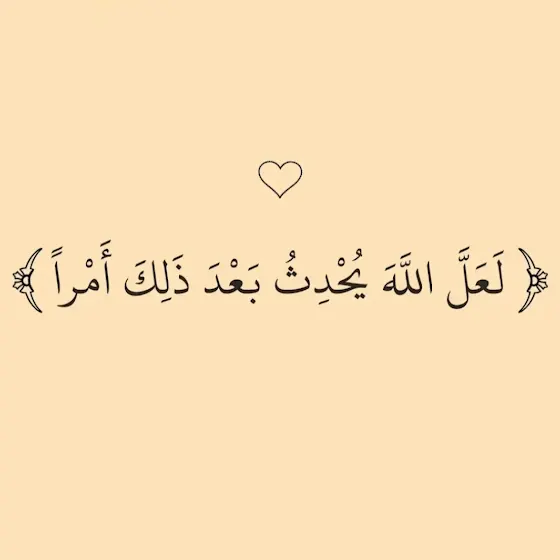 ﴿ لَعَلَّ اللَّهَ يُحْدِثُ بَعْدَ ذَلِكَ أَمْراً ﴾